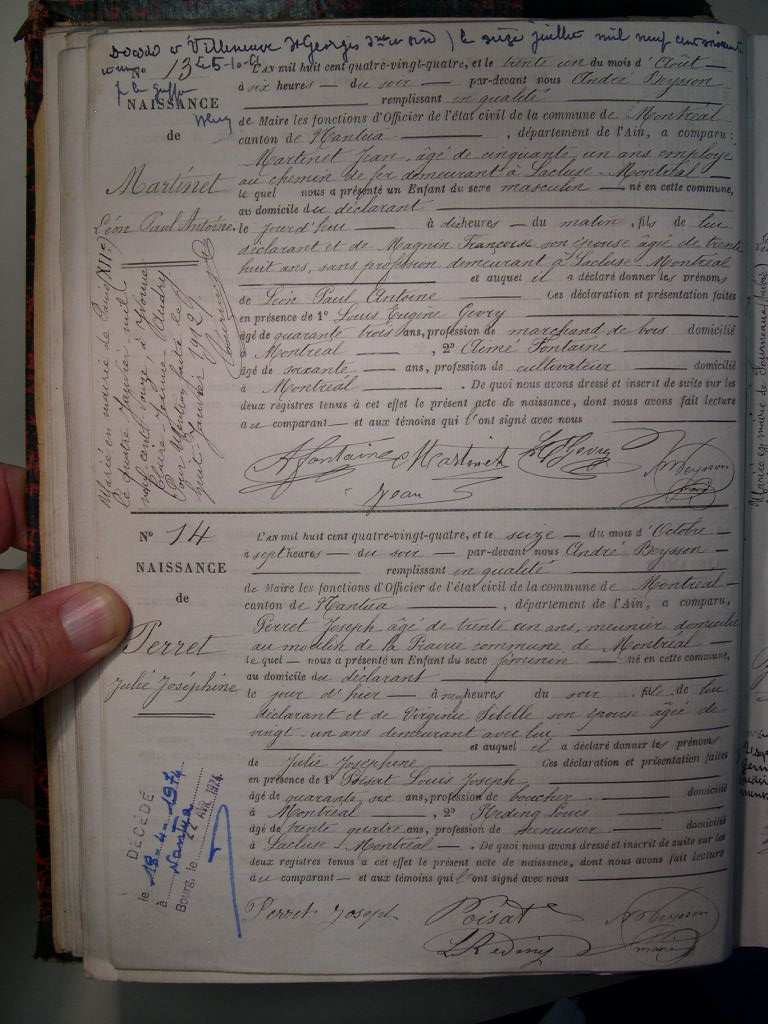 Décédé à Villeneuve St Georges le seize juillet mil neuf cent soixante
N° 13
NAISSANCE
de
Martinet
Léon Paul Antoine.
L'AN mil huit cent quatre-vingt-quatre, et le trente un du mois d'Août
à six heures — du soir — par-devant nous André Beysson
remplissant en qualité
de Maire les fonctions d'Officier de l'état civil de la commune de Montréal
canton de Nantua , département de l'Ain, a comparu :
Martinet Jean, âgé de cinquante un ans employé
au chemin de fer demeurant à Lacluse Montréal
le quel nous a présenté un Enfant du sexe masculin — né en cette commune,
au domicile du déclarant
le jourd'hui — à dix heures — du matin, fils de lui
déclarant et de Magnin Françoise son épouse âgée de trente
huit ans, sans profession demeurant à Lacluse Montréal
et auquel il a déclaré donner les prénoms
de Léon Paul, Antoine Ces déclaration et présentation faites
en présence de 1° Louis Eugène Gevry
âgé de quarante trois ans, profession de marchand de bois domicilié
à Montréal — , 2° Aimé Fontaine
âgé de soixante — ans, profession de cultivateur domicilié
à Montréal — . De quoi nous avons dressé et inscrit de suite sur les
deux registres tenus à cet effet le présent acte de naissance, dont nous avons fait lecture
au comparant — et aux témoins qui l'ont signé avec nous
A Fontaine Martinet Gevry A Beysson
Jean
Marié en mairie de Paris (XIIe)
le quatre Janvier mil
neuf cent
Claire Jeanne Audry
Pour Mention faite le
huit Janvier 19
N° 14
NAISSANCE
de
Perret
Julie Joséphine
L'an mil huit cent quatre-vingt-quatre, et le seize — du mois d'Octobre
à sept heures — du soir — par-devant nous André Beysson
remplissant en qualité
de Maire les fonctions d'Officier de l'état civil de la commune de Montréal
canton de Nantua , département de l'Ain, a comparu,
Perret Joseph âgé de trente un ans, meunier domicilié
au moulin de la Prairie commune de Montréal
le quel — nous a présenté un Enfant du sexe féminin — né en cette commune,
au domicile du déclarant
le jour d'hier — à heures du soir, fille de lui
déclarant et de Virginie son épouse âgée de
vingt-un ans demeurant avec lui
et auquel il a déclaré donner les prénoms
de Julie Joséphine Ces déclaration et présentation faites
en présence de 1° Poisat Louis Joseph
âgé de quarante six ans, profession de boucher domicilié
à Montréal — , 2° Louis
âgé de trente quatre ans, profession de menuisier domicilié
à Lacluse Montréal — . De quoi nous avons dressé et inscrit de suite sur les
deux registres tenus à cet effet le présent acte de naissance, dont nous avons fait lecture
au comparant — et aux témoins qui l'ont signé avec nous
Perret Joseph Poisat A Beysson
maire
DÉCÉDÉ
le 18-4-1974
à Nantua
Bourg, le 22 1974